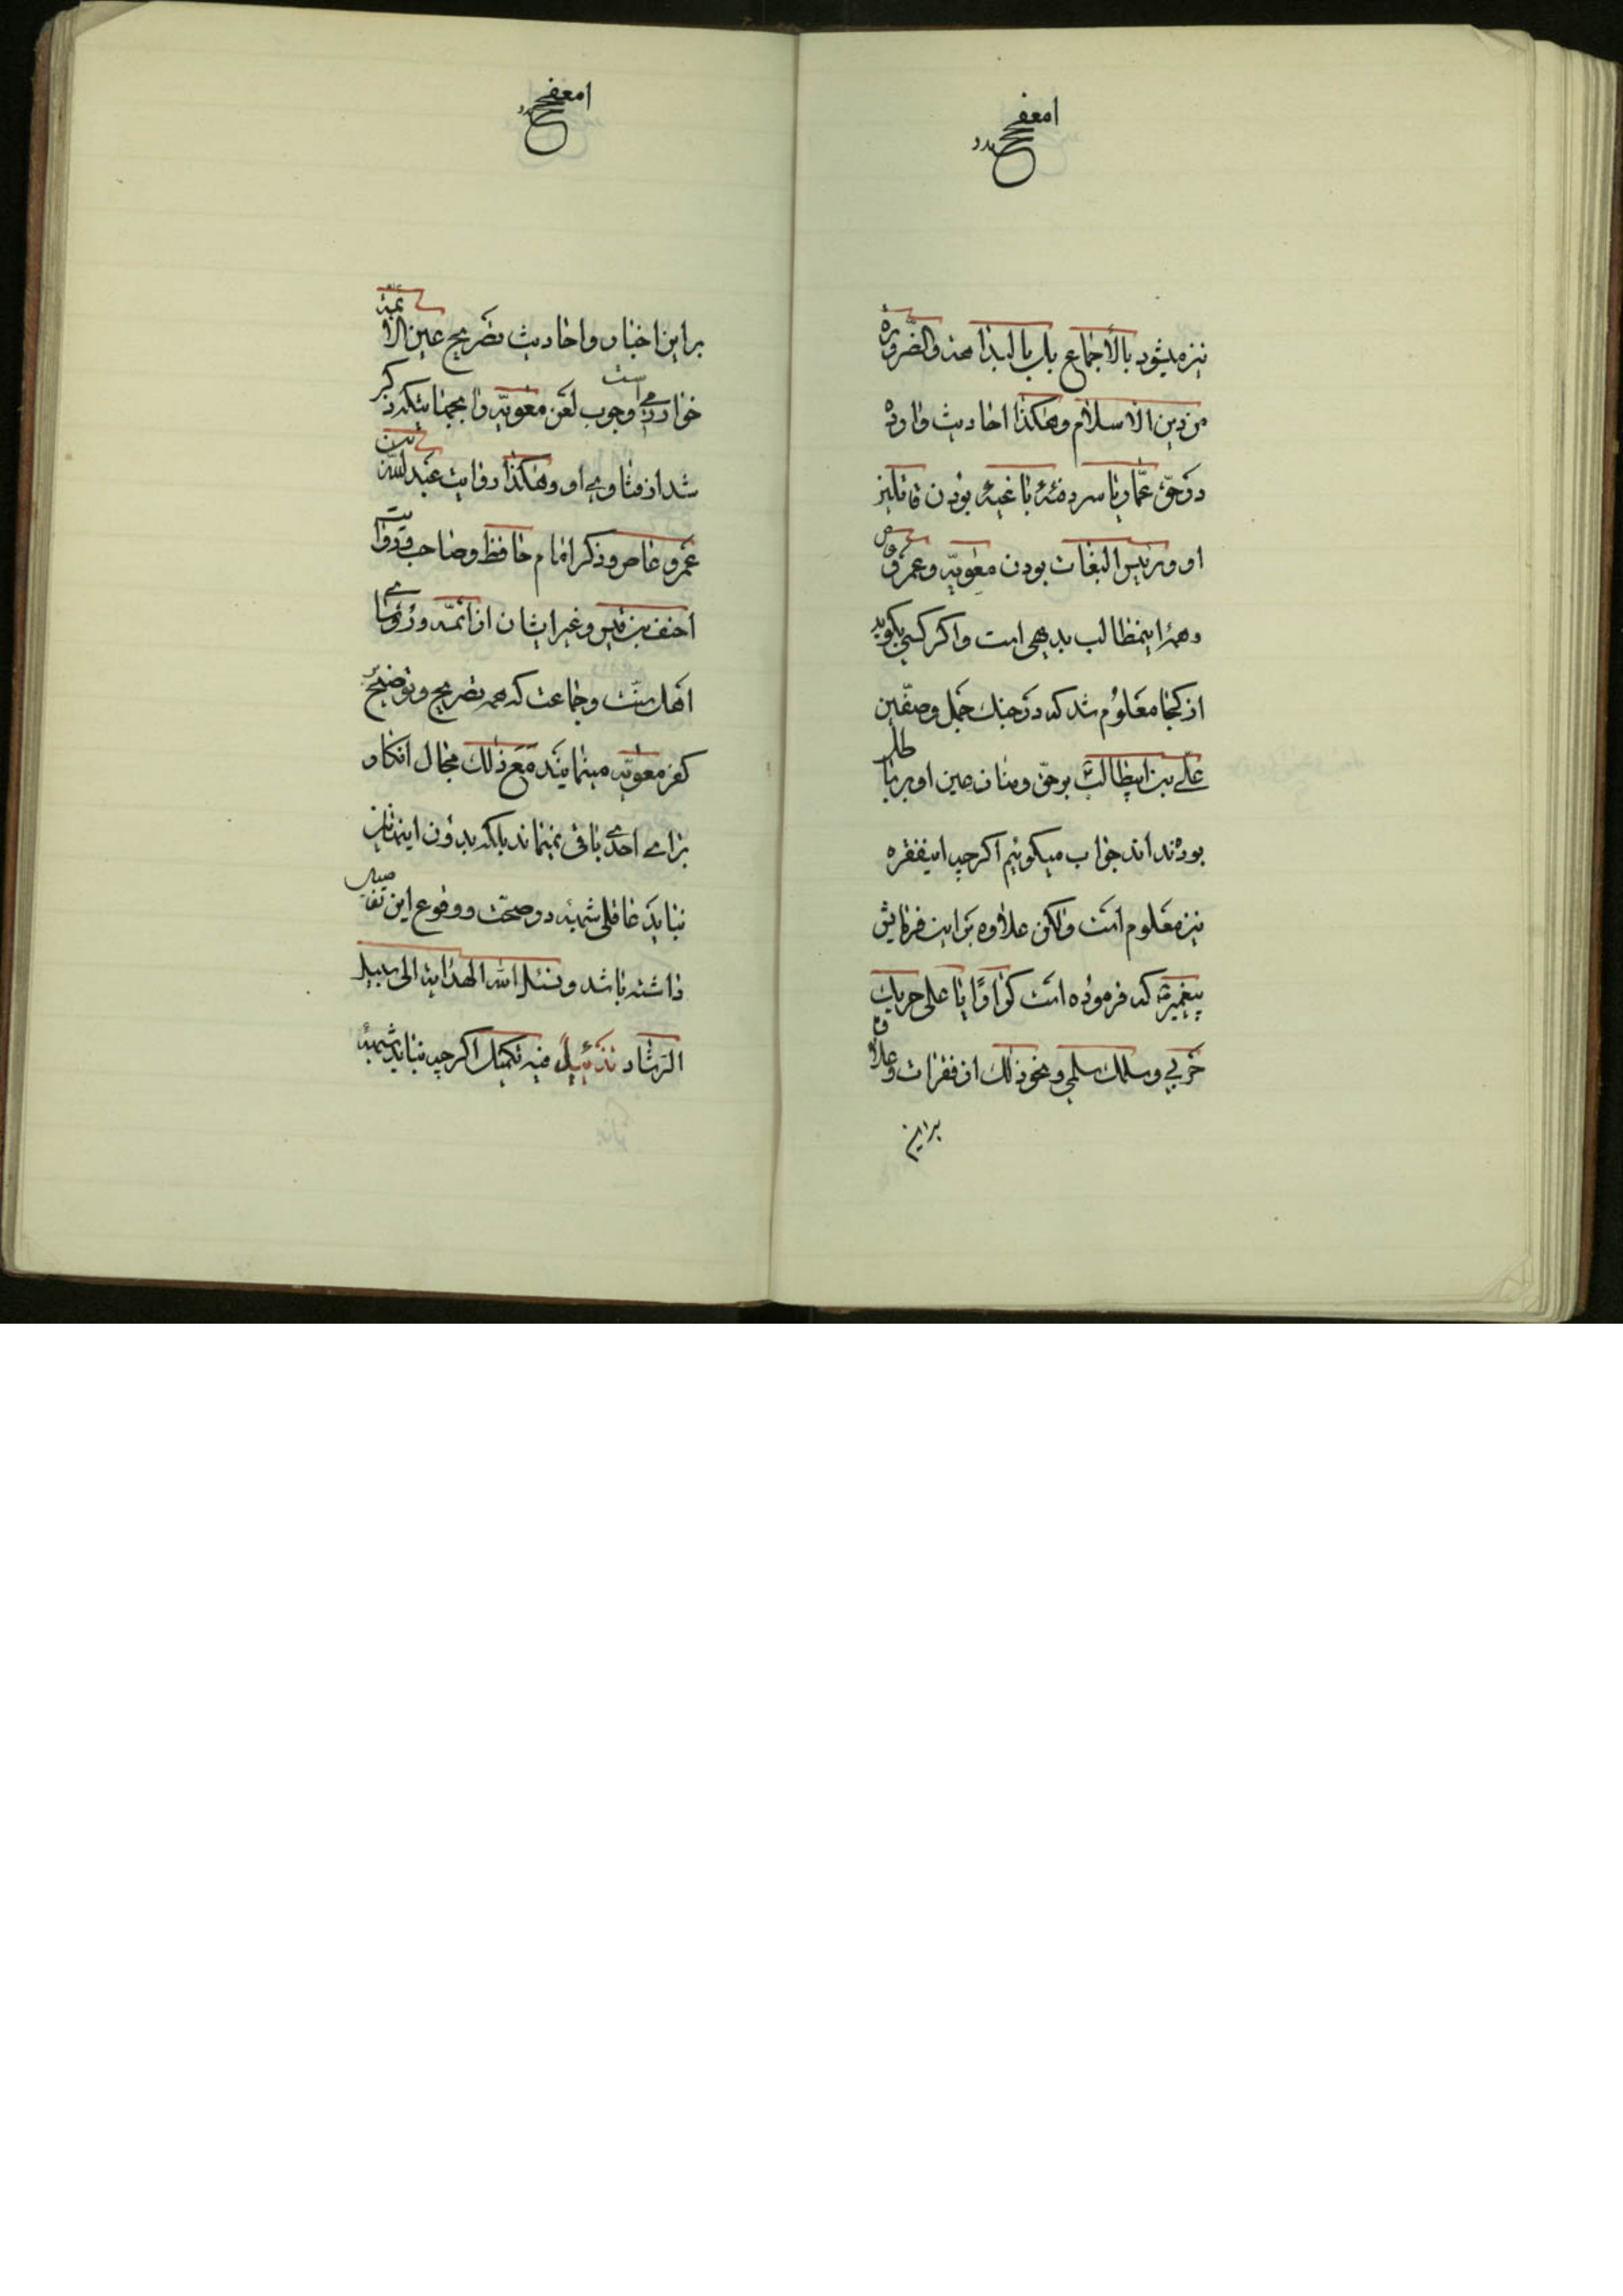 نیز میشود بالاجماع بل بالبداهة والضرورة
من دین الاسلام وهکذا احادیث وارده
در حق عمار یاسر و فئه باغیه بودن قاتلین
او و رئیس البغات بودن معویه و عمرو عاص
و همه اینمطالب بدیهی است و اکر کسی بکوید
از کجا معلوم شد که در جنك جمل و صفین
علی بن ابیطالب بر حق و منازعین او بر باطل
بوده‌اند جواب میکوئیم اکرچه اینفقره
نیز معلوم است ولکن علاوه بر این فرمایش
پیغمبر که فرموده است کرارا یا علی حربك
حربی وسلمك سلمی ونحو ذلك از فقرات وعلاوه
براین
بر این اخبار و احادیث تصریح عین الائمه
خوارزمی است وجوب لعن معویه را بجهنا یتکه ذکر
شد از فتاوی او وهکذا روایت عبدالله بن
عمرو عاص و ذکر امام حافظ وصاحب و روایت
احنف بن قیس وغیر ایشان از ائمه و رؤسای
اهل سنت وجماعت که همه تصریح وتوضیح بر
کفر معویه مینمایند مع ذلك مجال انکار
برای احدی باقی نمیماند بلکه بدون اینها نیز
نباید عاقلی شبهه در صحت ووقوع این تفاصیل
داشته باشد ونسئل الله الهدایة الی سبیل
الرشاد تذئیل فیه تکمیل اکرچه نباید شبهه